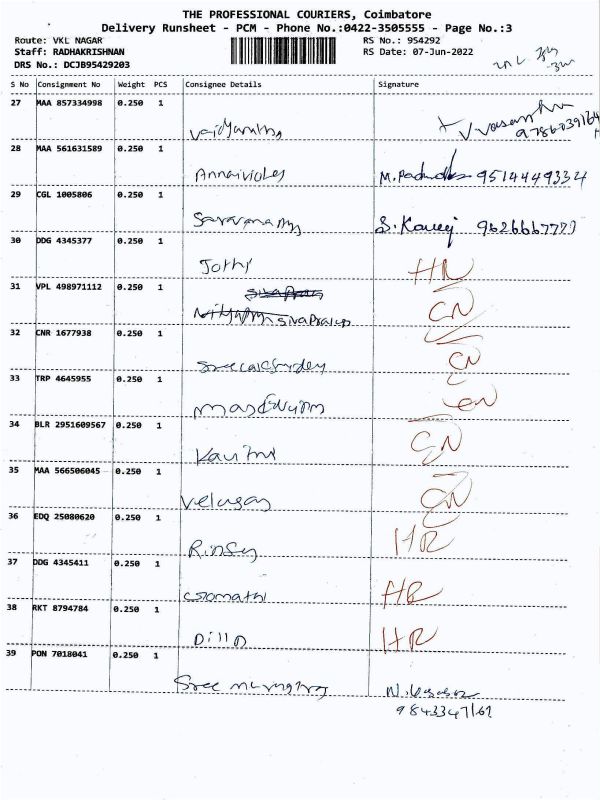 THE PROFESSIONAL COURIERS, Coimbatore
Delivery Runsheet - PCM - Phone No.:0422-3505555 - Page No.:3
Route: VKL NAGAR
Staff: RADHAKRISHNAN
DRS No.: DCJB95429203
RS No.: 954292
RS Date: 07-Jun-2022
S No Consignment No Weight PCS Consignee Details Signature
27 MAA 857334998 0.250 1
Vaidyanathan
28 MAA 561631589 0.250 1
Annaivioles 9514449334
29 CGL 1005806 0.250 1
Saravana 9626667777
30 DDG 4345377 0.250 1
Jothi HR
31 VPL 498971112 0.250 1
CN
32 CNR 1677938 0.250 1
CN
33 TRP 4645955 0.250 1
CN
34 BLR 2951609567 0.250 1
Kavitha CN
35 MAA 566506045 0.250 1
Velusamy CN
36 EDQ 25080620 0.250 1
Rinsy HR
37 DDG 4345411 0.250 1
Gomathi HR
38 RKT 8794784 0.250 1
Dillo HR
39 PON 7018041 0.250 1
Sree murugan